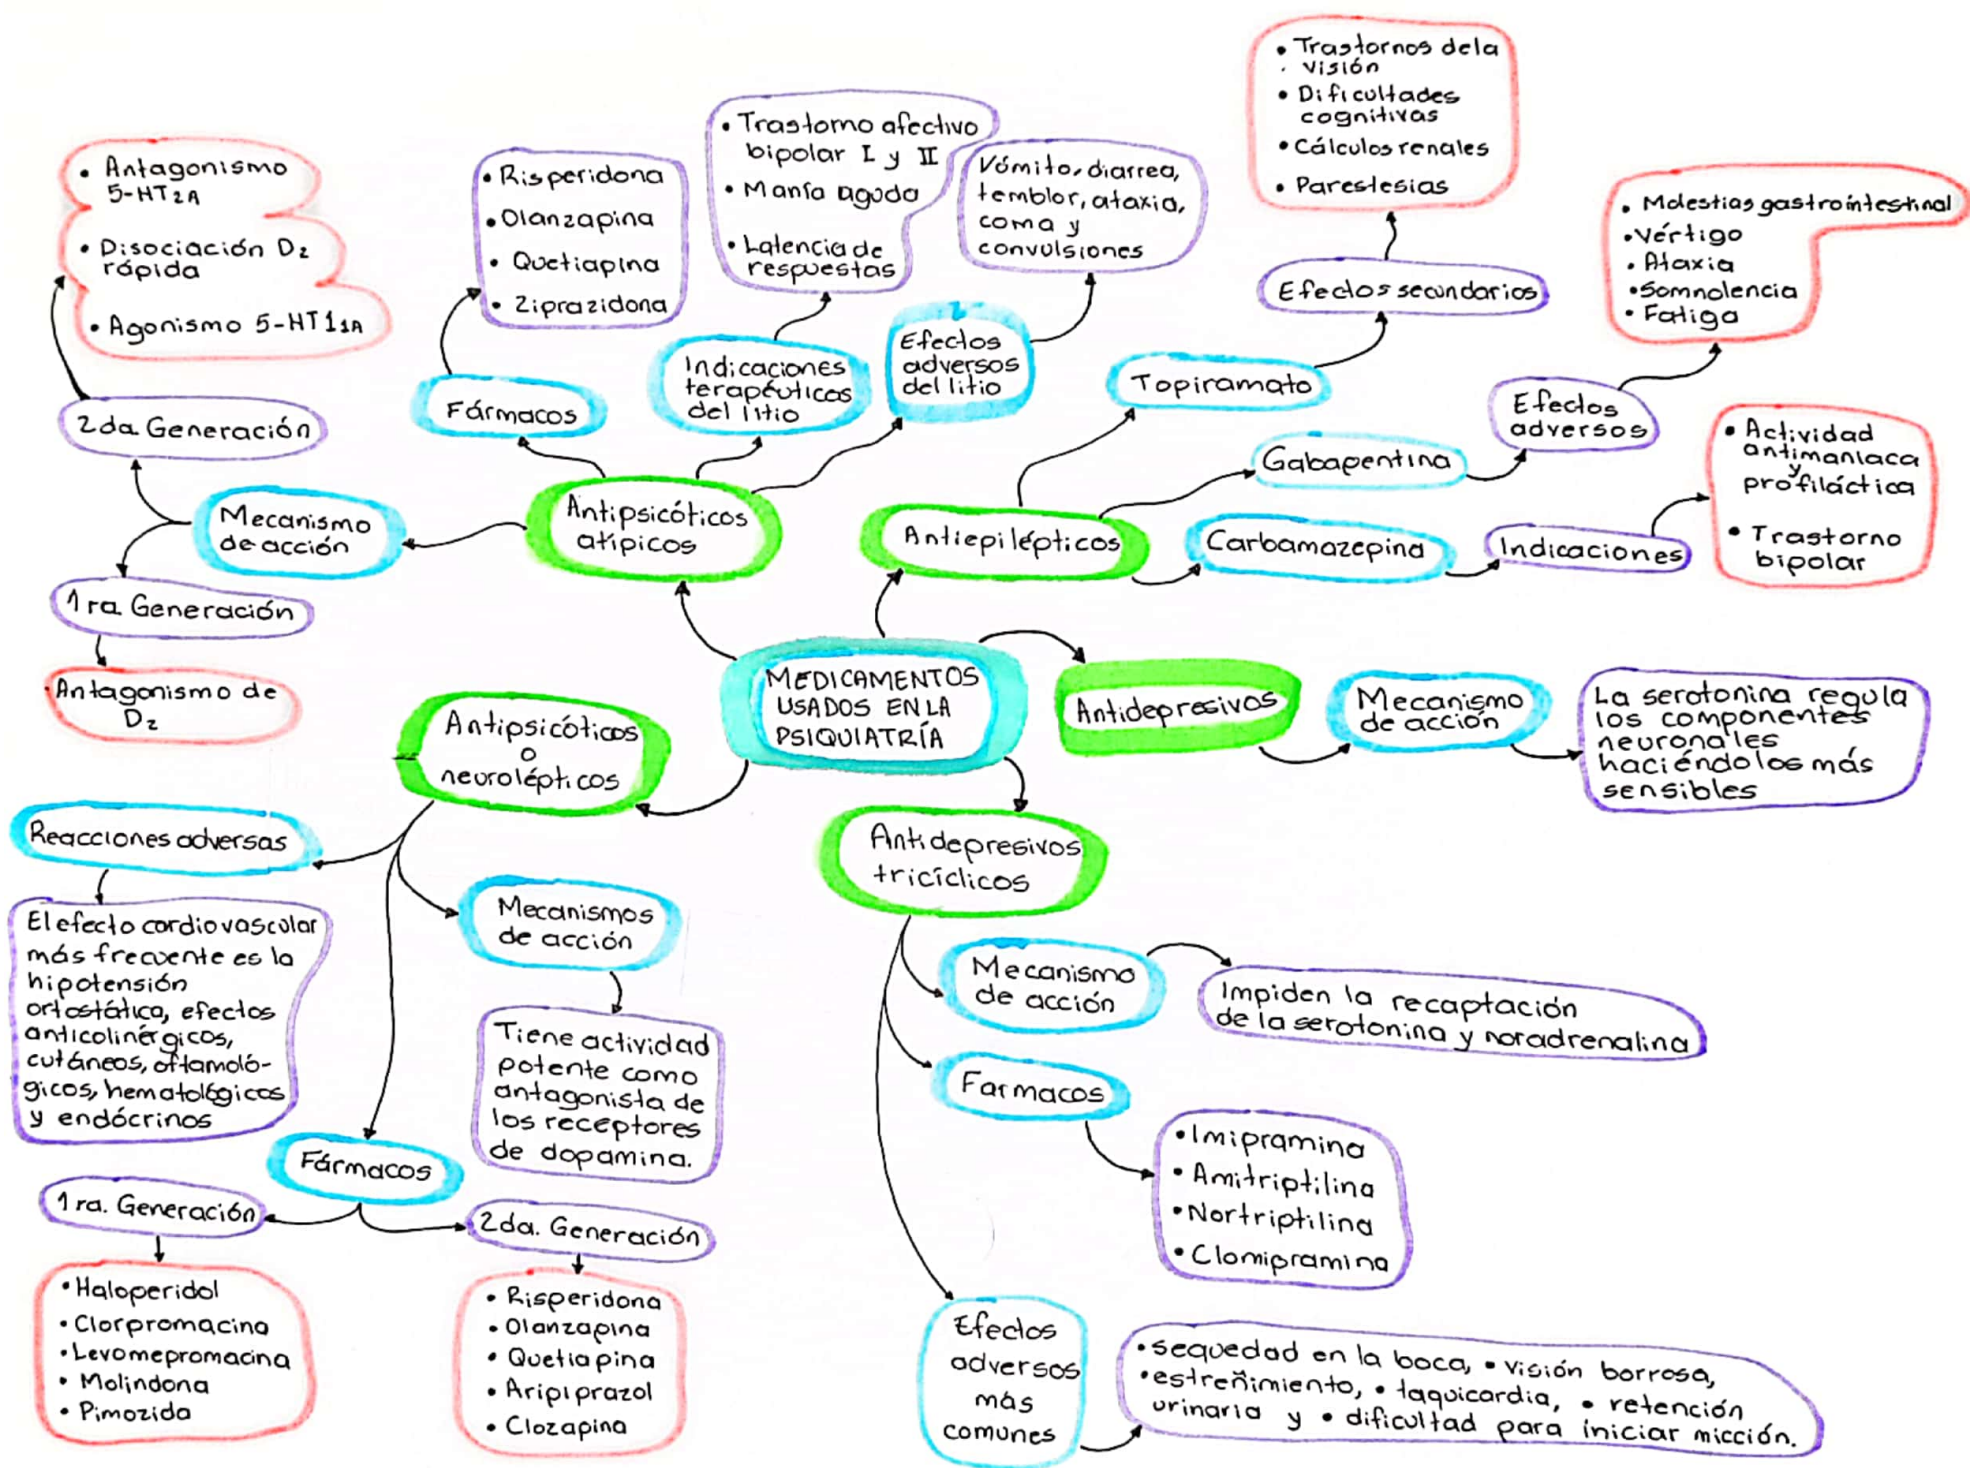 MEDICAMENTOS
USADOS EN LA
PSIQUIATRÍA
Antipsicóticos
atípicos
Mecanismo
de acción
2da. Generación
• Antagonismo
5-HT2A
• Disociación D2
rápida
• Agonismo 5-HT11A
1ra. Generación
Antagonismo de
D2
Fármacos
• Risperidona
• Olanzapina
• Quetiapina
• Ziprazidona
Indicaciones
terapéuticas
del litio
• Trastorno afectivo
bipolar I y II
• Manía aguda
• Latencia de
respuestas
Efectos
adversos
del litio
Vómito, diarrea,
temblor, ataxia,
coma y
convulsiones
Antiepilépticos
Topiramato
Efectos secundarios
• Trastornos de la
visión
• Dificultades
cognitivas
• Cálculos renales
• Parestesias
Gabapentina
Efectos
adversos
• Molestias gastrointestinal
• Vértigo
• Ataxia
• Somnolencia
• Fatiga
Carbamazepina
Indicaciones
• Actividad
antimaníaca
y
profiláctica
• Trastorno
bipolar
Antidepresivos
Mecanismo
de acción
La serotonina regula
los componentes
neuronales
haciéndolos más
sensibles
Antidepresivos
tricíclicos
Mecanismo
de acción
Impiden la recaptación
de la serotonina y noradrenalina
Farmacos
• Imipramina
• Amitriptilina
• Nortriptilina
• Clomipramina
Efectos
adversos
más
comunes
• sequedad en la boca, • visión borrosa,
• estreñimiento, • taquicardia, • retención
urinaria y • dificultad para iniciar micción.
Antipsicóticos
o
neurolépticos
Reacciones adversas
El efecto cardiovascular
más frecuente es la
hipotensión
ortostática, efectos
anticolinérgicos,
cutáneos, oftamoló-
gicos, hematológicos
y endócrinos
Mecanismos
de acción
Tiene actividad
potente como
antagonista de
los receptores
de dopamina.
Fármacos
1ra. Generación
• Haloperidol
• Clorpromacina
• Levomepromacina
• Molindona
• Pimozida
2da. Generación
• Risperidona
• Olanzapina
• Quetiapina
• Aripiprazol
• Clozapina